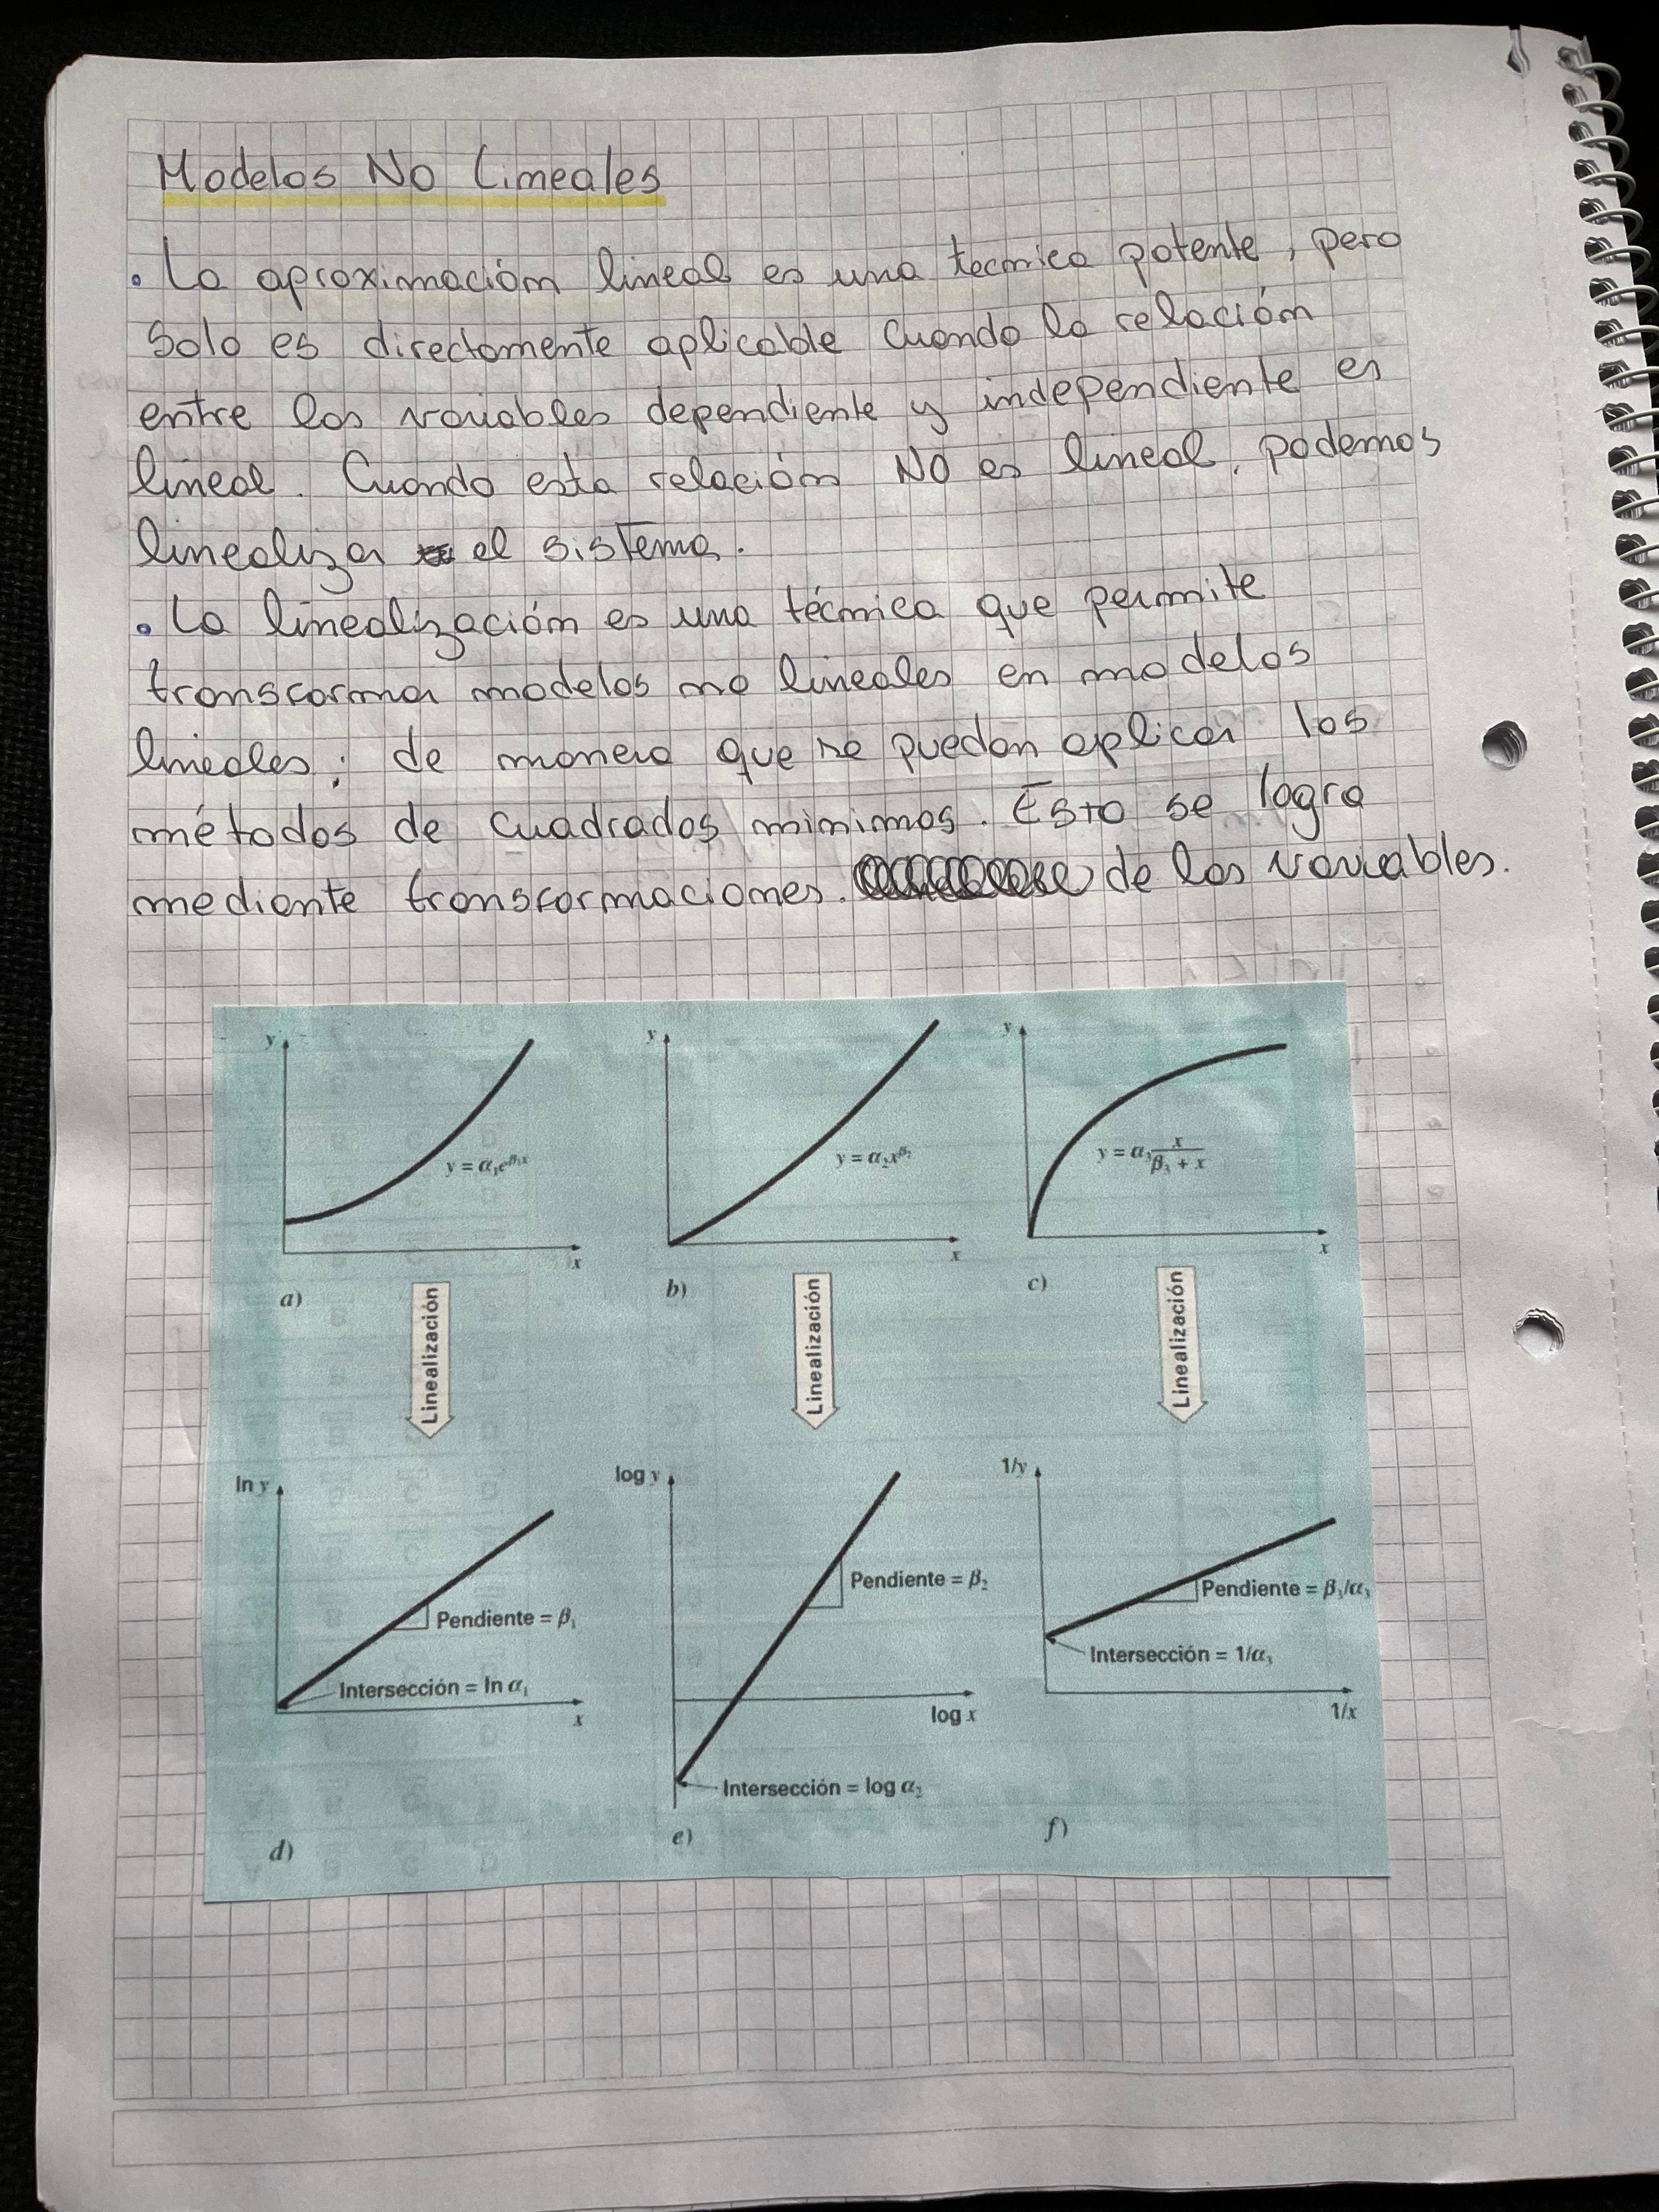 Modelos No Lineales
• La aproximación lineal es una tecnica potente, pero
solo es directamente aplicable cuando la relación
entre las variables dependiente y independiente es
lineal. Cuando esta relación NO es lineal, podemos
linealizar el sistema.
• La linealización es una técnica que permite
transformar modelos no lineales en modelos
lineales; de manera que se puedan aplicar los
métodos de cuadrados minimos. Esto se logra
mediante transformaciones. de las variables.
y y y
y = α₁e^β₁x y = α₂x^β₂ y = α₃ x/(β₃ + x)
x x x
a) b) c)
Linealización Linealización Linealización
ln y log y 1/y
Pendiente = β₁ Pendiente = β₂ Pendiente = β₃/α₃
Intersección = ln α₁ Intersección = 1/α₃
x log x 1/x
Intersección = log α₂
d) e) f)